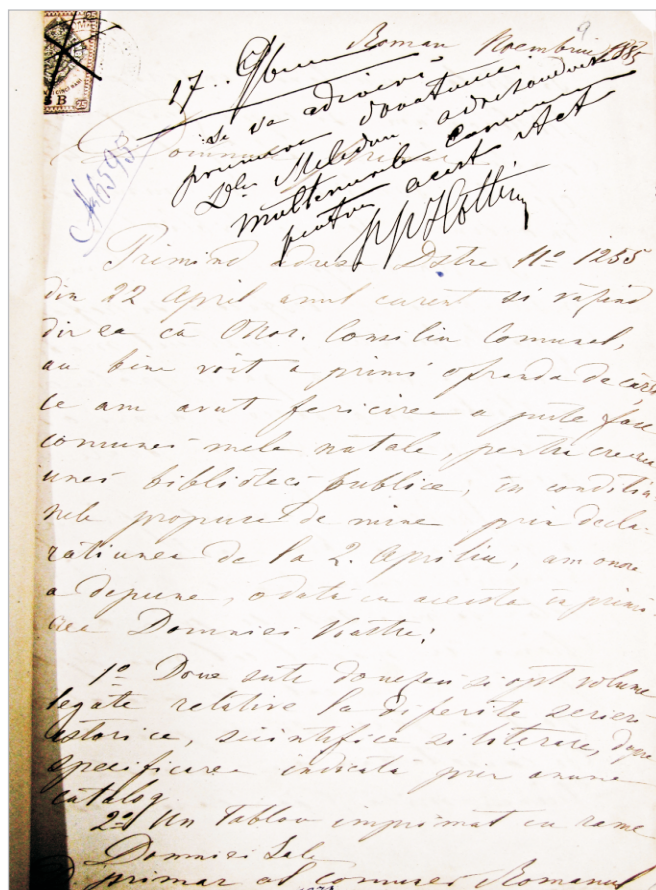 9
Roman Noembrie 1885
17.. 9bre
se va adeveri
primirea donatiunei
Dlui Meledon adresandu-se
multumirile comunei
pentru acest Act
Domnule Primar
№ 6595
B
Primind adresa Dstre Nº 1255
din 22 April anul curent si văzind
din ea că Onor. Consiliu Comunal,
au bine voit a primi ofranda de cărți
ce am avut fericirea a pute face
comunei mele natale, pentru crearea
unei biblioteci publice, in conditiu-
nele propuse de mine prin decla-
ratiunea de la 2. Apriliu, am onore
a depune, odată cu acesta in primi-
rea Domniei Vostre:
1º Doue sute douezeci si opt volume
legate relative la diferite scrieri
istorice, sciintifice si literare, dupe
specificarea indicată prin anume
catalog
2º Un Tablou imprimat cu rame
Domniei Sale
primar al comunei Romanul